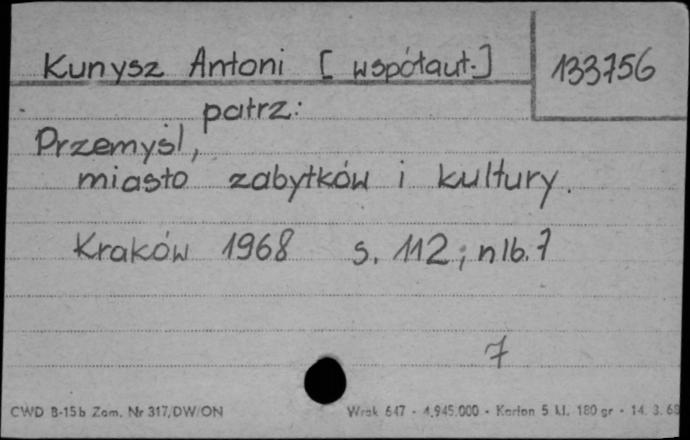 Kunysz Antoni [współaut.]
133756
patrz:
Przemyśl,
miasto zabytków i kultury.
Kraków 1968 s. 112; nlb. 7
7
CWD B-15b Zam. Nr 317/DW/ON
Wrsk 647 - 4.945.000 - Karton 5 kl. 180 gr - 14. 3. 68